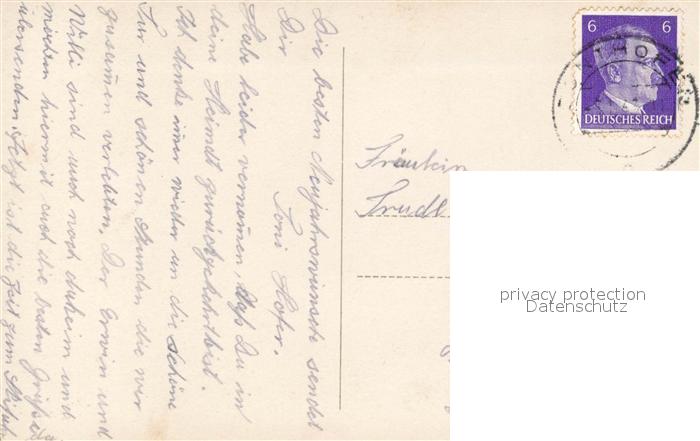 Die besten Neujahrswünsche sendet
Dir Toni Hofer.
Habe leider vernommen, daß Du in
deine Heimdt zurückgekehrt bist.
Ich denke imer wieder an die schöne
Tur und schönen Stunden die wir
zusammen verlebten. Der Erwin und
Willi sind auch noch daheim und
möchten hiermit auch die besten Grüße
übersenden. Jetzt ist die Zeit zum
Fräulein
Trudl
6 6
DEUTSCHES REICH
privacy protection
Datenschutz